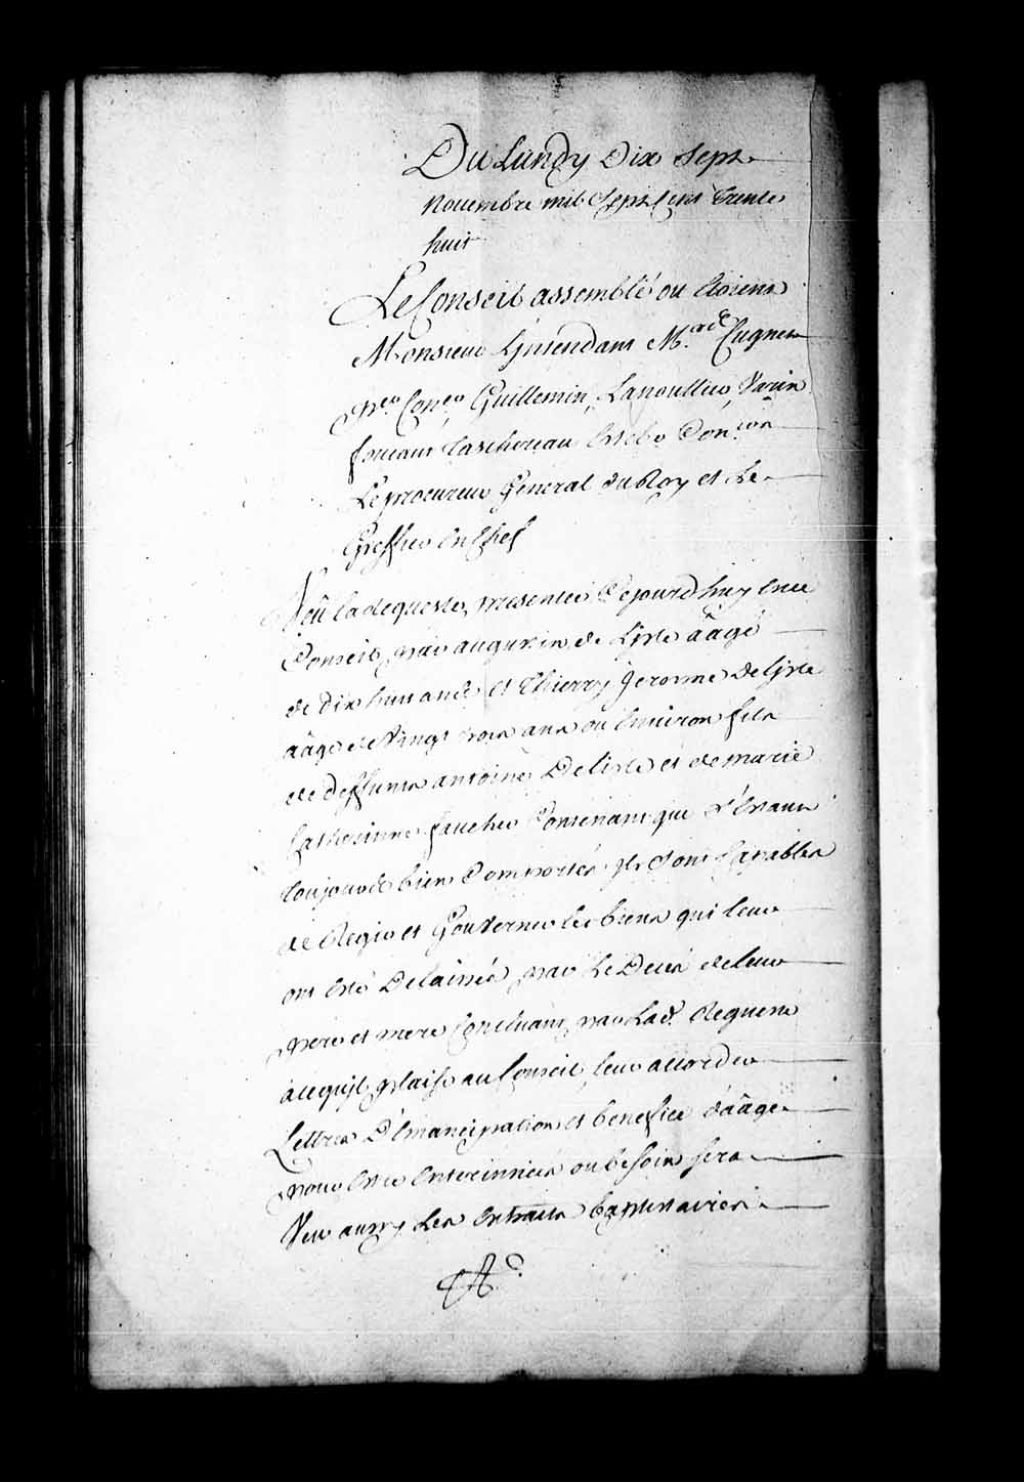 Du Lundy Dix Sept
Nouembre mil Sept Cent trente
huit
Le Conseil assemblé ou Etoient
Monsieur L'Intendant Mrs de Cugnet
pr. Coner, Guillemin, Lanoullier, Varin
foucaut taschereau Con.ers
Le procureur General du Roy et Le
Greffier En Chef
Veû la Requeste presentée Cejourdhuy En ce
Conseil par augustin de Liste âàgé
de dix huit ans Et thierry Jerosme Deliste
âàgé de Vingt trois ans ou Enuiron fils
de deffunts antoine Deliste et de marie
Catherinne faucher Contenant que s'Estant
toujours bien Comportés ils sont Capables
de Regir et Gouverner les biens qui leur
ont Esté Delaissés par Le Decés de leur
pere et mere Concluant par Lad. Requeste
a ce qu'il plaise au Conseil leur accorder
Lettres D'Emancipation et benefice d'âàge
pour Estre Enterinnées ou besoin sera
Veu aussy Les Extraits baptistaires